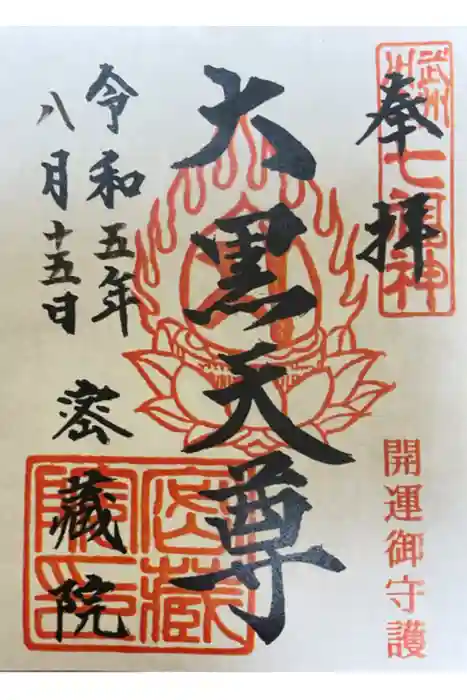 奉拝
武州川口七福神
開運御守護
大黒天尊
令和五年
八月十五日
密蔵院
密蔵院印